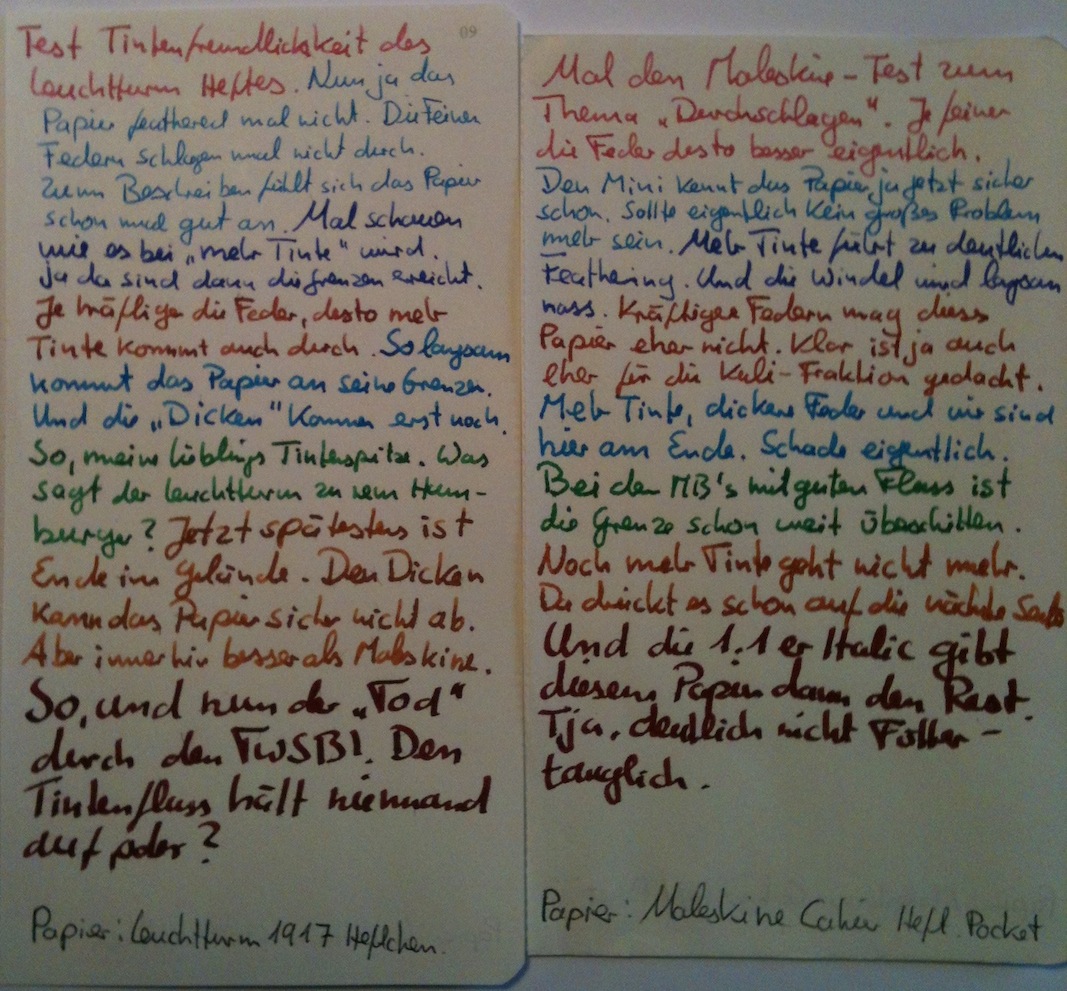 09
Test Tintenfreundlichkeit des
Leuchtturm Heftes. Nun ja das
Papier feathered mal nicht. Die Feinen
Federn schlagen mal nicht durch.
Zum Beschreiben fühlt sich das Papier
schon mal gut an. Mal schauen
wie es bei „mehr Tinte" wird.
Ja da sind dann die Grenzen erreicht.
Je kräftiger die Feder, desto mehr
Tinte kommt auch durch. So langsam
kommt das Papier an seine Grenzen.
Und die „Dicken" kommen erst noch.
So, meine lieblings Tintenspritze. Was
sagt der Leuchtturm zu nem Ham-
burger? Jetzt spätestens ist
Ende im Gelände. Den Dicken
kann das Papier sicher nicht ab.
Aber immerhin besser als Moleskine.
So, und nun der „Tod"
durch den TWSBI. Den
Tintenfluss hält niemand
auf oder?
Papier: Leuchtturm 1917 Heftchen.
Mal den Moleskine-Test zum
Thema „Durchschlagen". Je feiner
die Feder desto besser eigentlich.
Den Mini kennt das Papier ja jetzt sicher
schon. Sollte eigentlich kein großes Problem
mehr sein. Mehr Tinte führt zu deutlichen
Feathering. Und die Windel wird langsam
nass. Kräftigere Federn mag dieses
Papier eher nicht. Klar ist ja auch
eher für die Kuli-Fraktion gedacht.
Mehr Tinte, dickere Feder und wir sind
hier am Ende. Schade eigentlich.
Bei den MB's mit guten Fluss ist
die Grenze schon weit überschitten.
Noch mehr Tinte geht nicht mehr.
Da drückt es schon auf die nächste Seite
Und die 1.1 er Italic gibt
diesem Papier dann den Rest.
Tja, deutlich nicht Füller-
tauglich.
Papier: Moleskine Cahier Heft Pocket